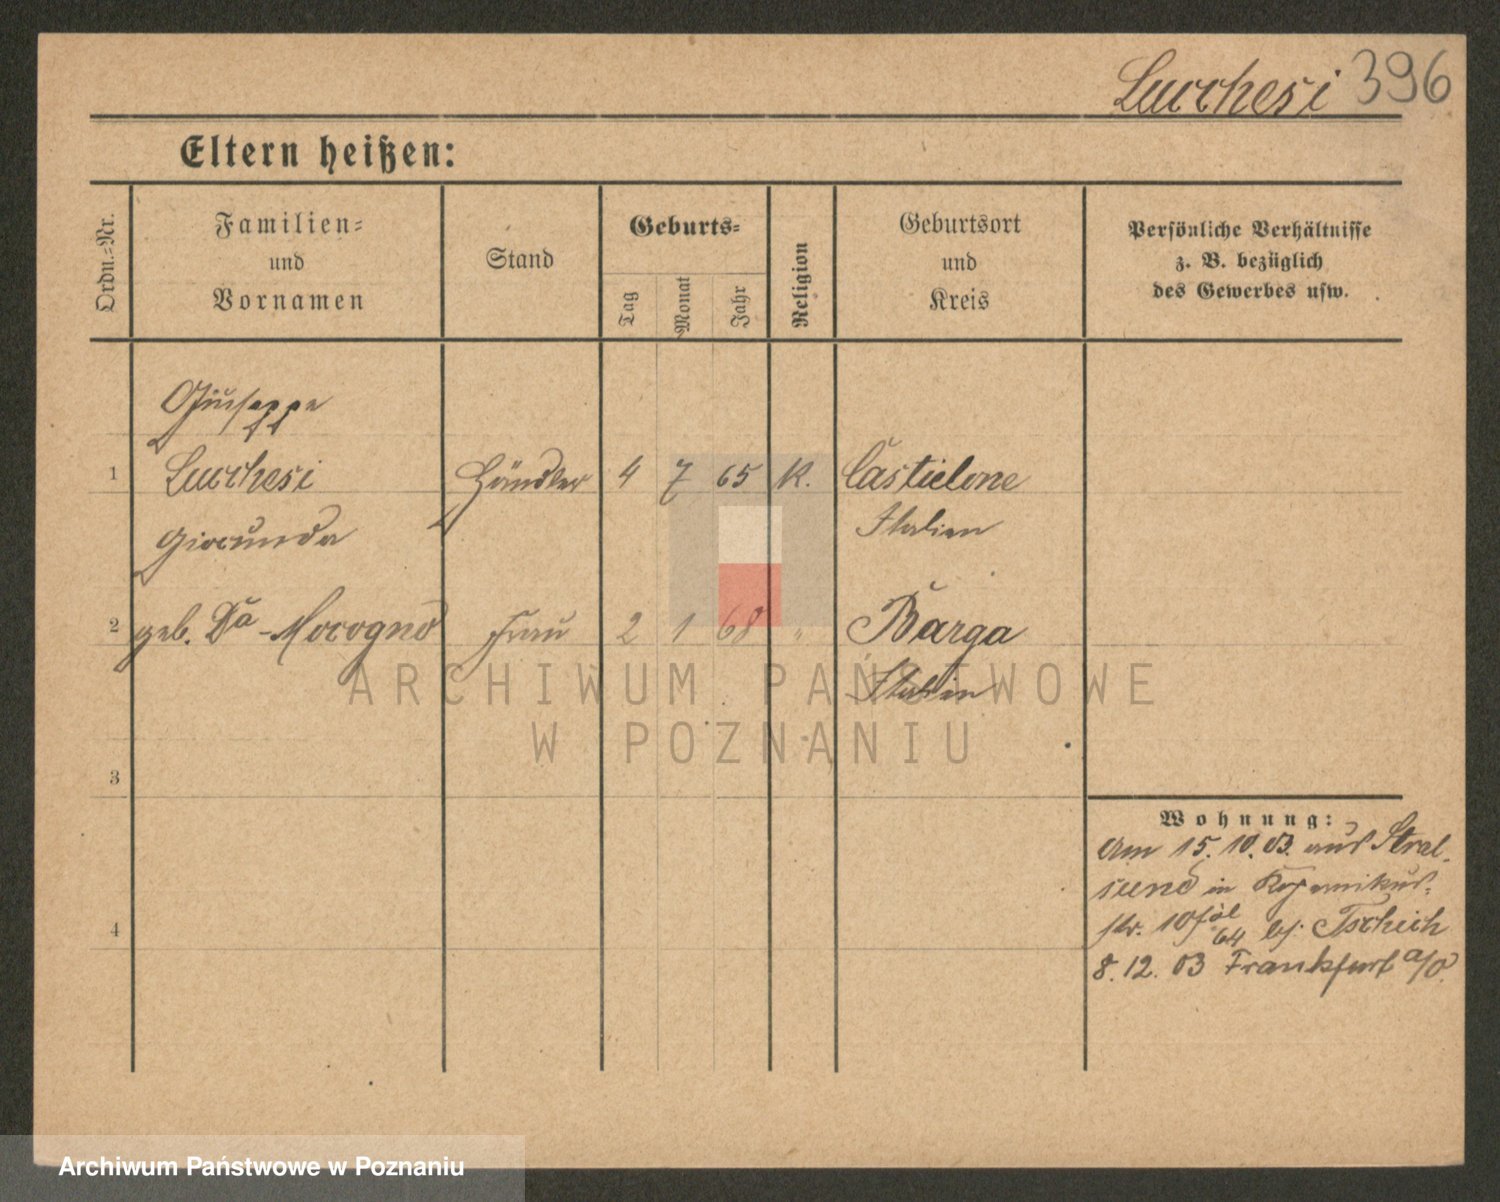 Lucchesi 396
Eltern heißen:
Ordn.-Nr.
Familien-
und
Vornamen
Stand
Geburts-
Tag
Monat
Jahr
Religion
Geburtsort
und
Kreis
Persönliche Verhältnisse
z. B. bezüglich
des Gewerbes usw.
Giuseppe
1 Lucchesi Händler 4 7 65 K. Castielone
Giocunda Italien
2 geb. Da-Mocogno Frau 2 1 68 " Barga
Italien
ARCHIWUM PAŃSTWOWE
W POZNANIU
3
4
Wohnung:
Am 15. 10. 03. aus Stral-
sund in Kopernikus-
str. 10 64 bei Tschich
8. 12. 03 Frankfurt a/O.
Archiwum Państwowe w Poznaniu